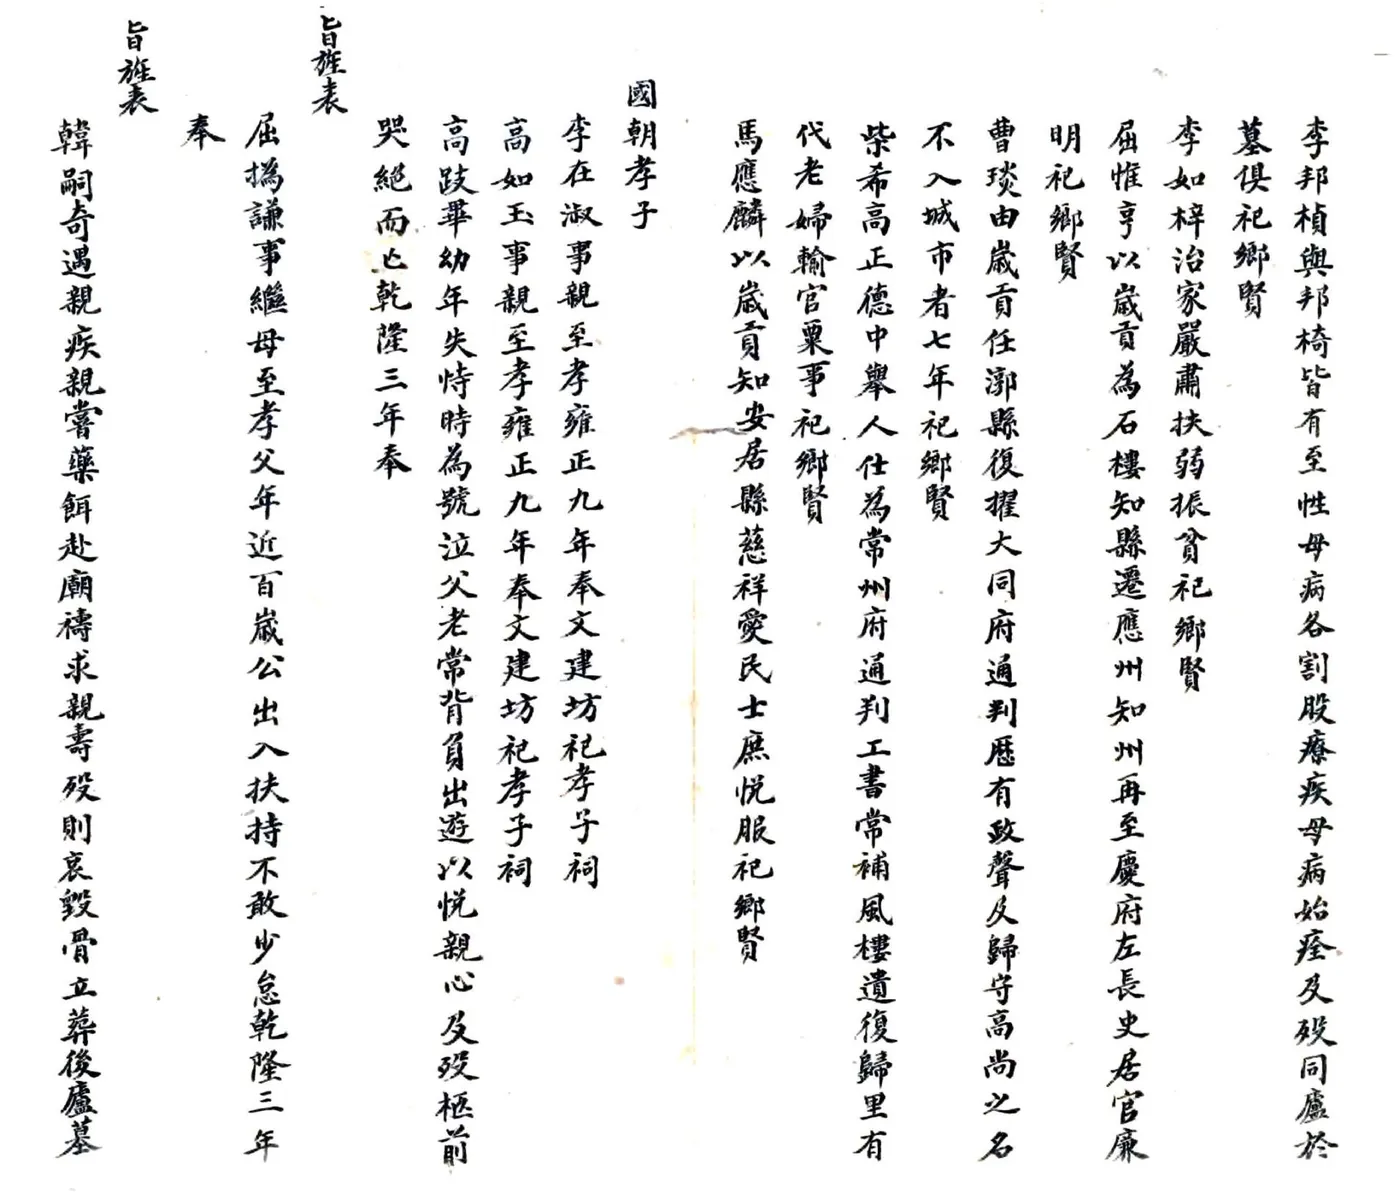 李邦楨與邦椅皆有至性母病各割股療疾母病始痊及歿同廬於
墓俱祀鄉賢
李如梓治家嚴肅扶弱振貧祀鄉賢
屈惟亨以歲貢為石樓知縣遷應州知州再至慶府左長史居官廉
明祀鄉賢
曹琰由歲貢任漷縣復擢大同府通判歷有政聲及歸守高尚之名
不入城市者七年祀鄉賢
柴希高正德中舉人仕為常州府通判工書常補風樓遺復歸里有
代老婦輸官粟事祀鄉賢
馬應麟以歲貢知安居縣慈祥愛民士庶悅服祀鄉賢
國朝孝子
李在淑事親至孝雍正九年奉文建坊祀孝子祠
高如玉事親至孝雍正九年奉文建坊祀孝子祠
高跂畢幼年失恃時為號泣父老常背負出遊以悅親心及歿柩前
哭絕而亡乾隆三年奉
旨旌表
屈撝謙事繼母至孝父年近百歲公出入扶持不敢少怠乾隆三年
奉
旨旌表
韓嗣奇遇親疾親嘗藥餌赴廟禱求親壽歿則哀毀骨立葬後廬墓